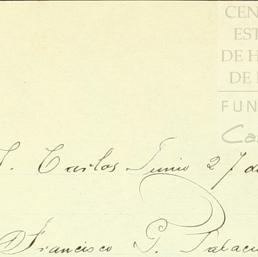 CEN
EST
DE H
DE
FUN
Ca
S. Carlos Junio 27 d
Francisco G. Palaci